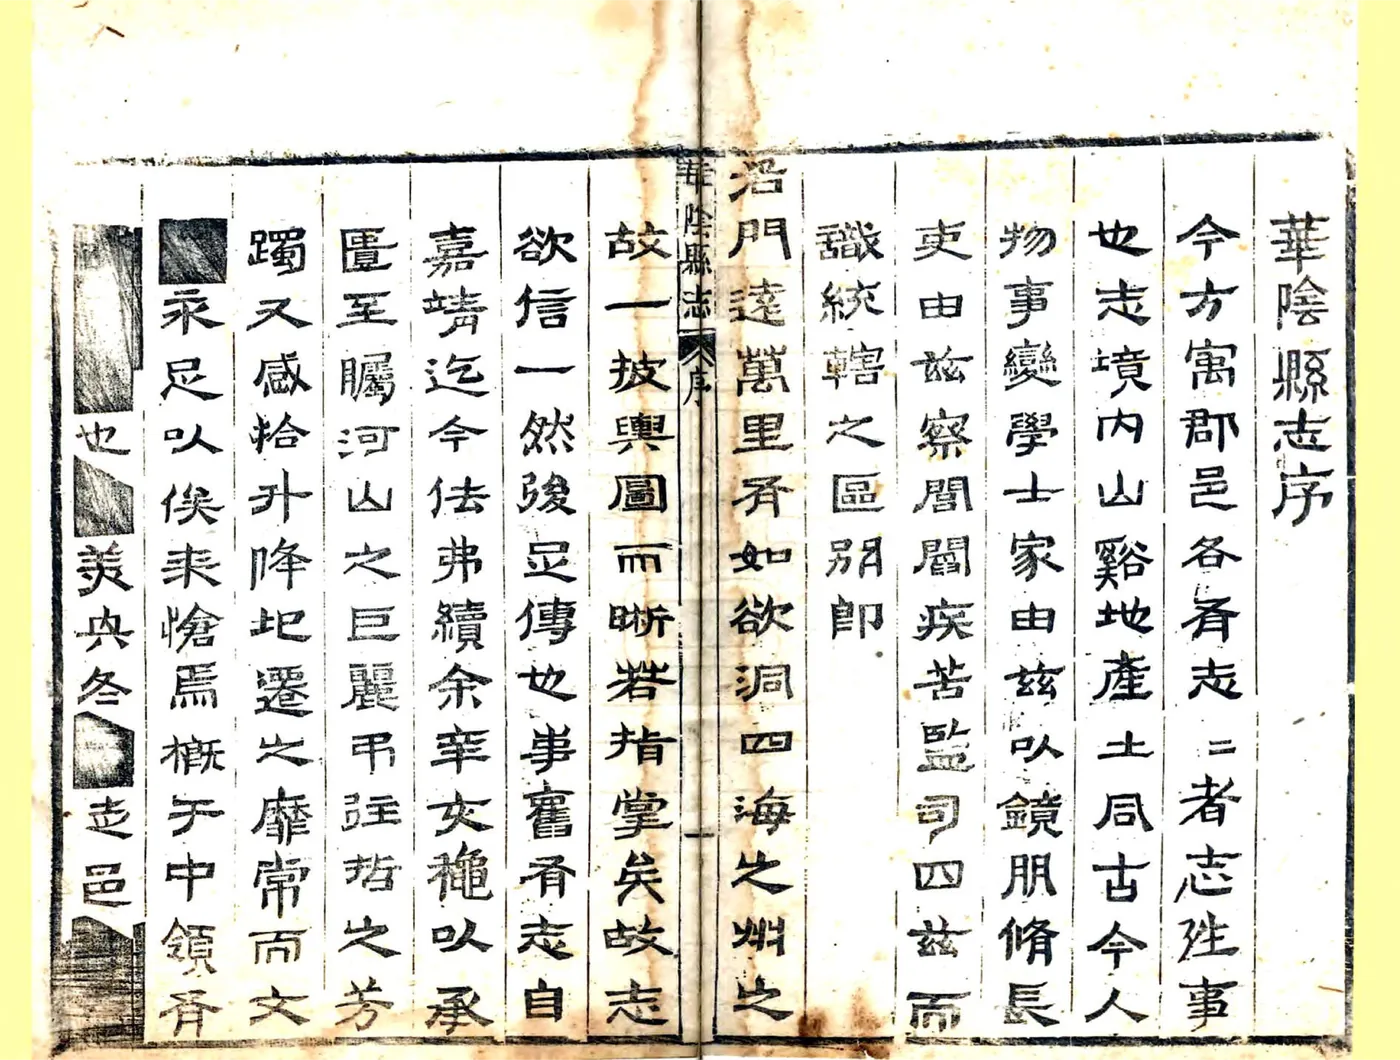 華陰縣志序
今方寓郡邑各有志二者志往事
也志境内山谿地產土同古今人
物事變學士家由兹以鏡朋脩長
吏由兹察閭閻疾苦監司四兹而
識統轄之區别即
沿門遠萬里有如欲洞四海之州之
華陰縣志 序 一
故一披輿圖而晰若指掌矣故志
欲信一然後足傳也事舊有志自
嘉靖迄今佉弗續余宰以承
匱至矚河山之巨麗弔往哲之芳
躅又感拾升降圯遷之靡常而文
永足以俟来愴焉概于中領有
也美典冬志邑